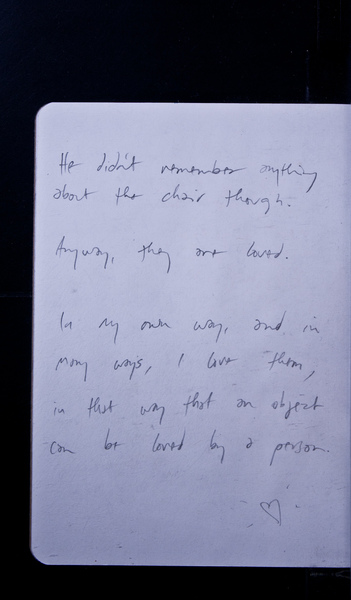 He didn't remember anything
about the chair though.
Anyway, they are loved.
In my own way, and in
many ways, I love them,
in that way that an object
can be loved by a person.